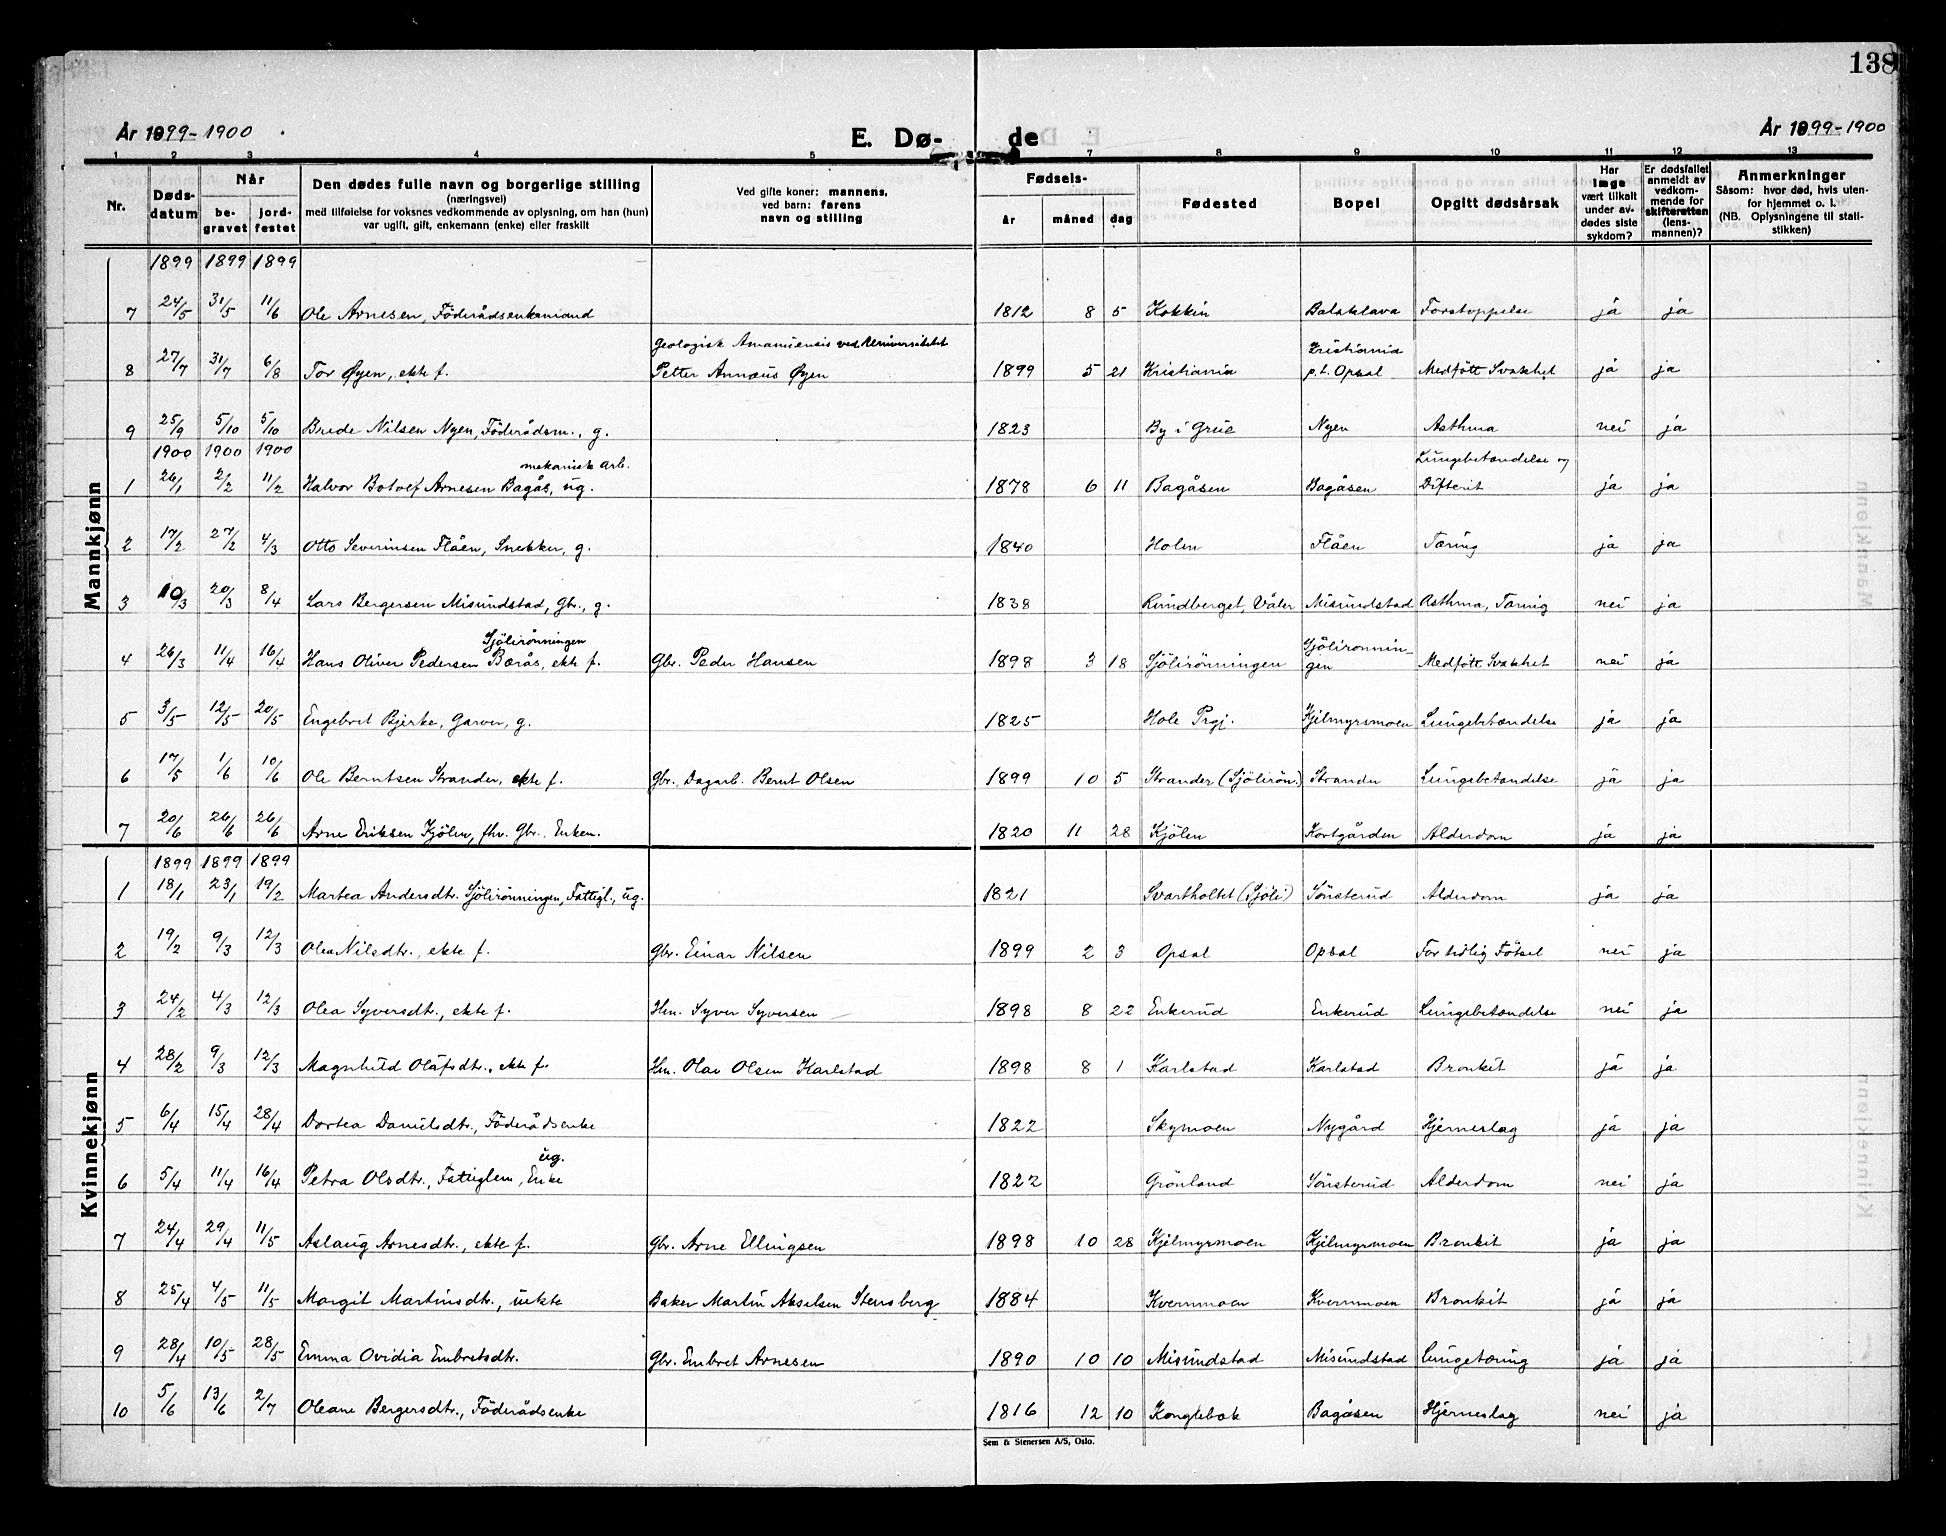 138
År 1899-1900
E. Dø-
de
År 1899-1900
1 2 3 4 5 7 8 9 10 11 12 13
Nr.
Døds-
datum
Når
be-
gravet
jord-
festet
Den dødes fulle navn og borgerlige stilling
(næringsvei)
med tilføielse for voksnes vedkommende av oplysning, om han (hun)
var ugift, gift, enkemann (enke) eller fraskilt
Ved gifte koner: mannens,
ved barn: farens
navn og stilling
Fødsels-
år
måned
dag
Fødested
Bopel
Opgitt dødsårsak
Har
læge
vært tilkalt
under av-
dødes siste
sykdom?
Er dødsfallet
anmeldt av
vedkom-
mende for
skifteretten
(lens-
mannen)?
Anmerkninger
Såsom: hvor død, hvis uten-
for hjemmet o. l.
(NB. Oplysningene til stati-
stikken)
Mannkjønn
1899 1899 1899
7 24/5 31/5 11/6 Ole Arnesen, Föderådsenkemand 1812 8 5 Kokkin Balaklava Forstoppelse ja ja
Geologisk Amanuensis ved Universitetet Kristiania
8 27/7 31/7 6/8 Tor Øyen, ekte f. Petter Annæus Øyen 1899 5 21 Kristiania p.t. Opsal Medfött Svakhet ja ja
9 25/9 5/10 5/10 Brede Nilsen Nyen, Föderådsm., g. 1823 By i Grue Nyen Asthma nei ja
1900 1900 1900
mekanisk arb. Lungebetændelse og
1 26/1 2/2 11/2 Halvor Botolf Arnesen Bagås, ug. 1878 6 11 Bagåsen Bagåsen Difterit ja ja
2 17/2 27/2 4/3 Otto Severinsen Flåen, Snekker, g. 1840 Holm Flåen Tæring ja ja
3 10/3 20/3 8/4 Lars Bergersen Misundstad, Gbr., g. 1838 Rundberget, Våler Misundstad Asthma, Tæring nei ja
Sjölirönningen Sjölirönnin-
4 26/3 11/4 16/4 Hans Oliver Pedersen Bærås, ekte f. Gbr. Peder Hansen 1898 3 18 Sjölirönningen gen Medfött Svakhet nei ja
5 3/5 12/5 20/5 Engebret Bjerke, Garver, g. 1825 Hole Prgj. Kjilmyrsmoen Lungebetændelse ja ja
6 17/5 1/6 10/6 Ole Berntsen Strander, ekte f. Gbr., Dagarb. Bernt Olsen 1899 10 5 Strander (Sjölirön.) Strander Lungebetændelse ja ja
7 20/6 26/6 26/6 Arne Eriksen Kjölen, fhv. Gbr. Enkem. 1820 11 28 Kjölen Kortgården Alderdom ja ja
Kvinnekjønn
1899 1899 1899
1 18/1 23/1 19/2 Martea Andersdtr. Sjölirönningen, Fattigl., ug. 1821 Svartholtet (Sjöli) Sönsterud Alderdom ja ja
2 19/2 9/3 12/3 Olea Nilsdtr., ekte f. Gbr. Einar Nilsen 1899 2 3 Opsal Opsal For tidlig Fötsel nei ja
3 24/2 4/3 12/3 Olea Syversdtr., ekte f. Hm. Syver Syversen 1898 8 22 Enkerud Enkerud Lungebetændelse nei ja
4 28/2 9/3 12/3 Magnhild Olafsdtr., ekte f. Hm. Olav Olsen Karlstad 1898 8 1 Karlstad Karlstad Bronkit ja ja
5 6/4 15/4 28/4 Dortea Danielsdtr., Föderådsenke 1822 Skymoen Nygård Hjerneslag ja ja
ug.
6 5/4 11/4 16/4 Petra Olsdtr., Fattiglem, Enke 1822 Grönland Sönsterud Alderdom nei ja
7 24/4 29/4 11/5 Aslaug Arnesdtr., ekte f. Gbr. Arne Ellingsen 1898 10 28 Kjilmyrmoen Kjilmyrmoen Bronkit ja ja
8 25/4 4/5 11/5 Margit Martinsdtr., uekte Baker Martin Akselsen Stensberg 1884 Kvernmoen Kvernmoen Bronkit ja ja
9 28/4 10/5 28/5 Emma Ovidia Embretsdtr. Gbr. Embret Arnesen 1890 10 10 Misundstad Misundstad Lungetæring ja ja
10 5/6 13/6 2/7 Oleane Bergersdtr., Föderådsenke 1816 12 10 Konglebæk Bagåsen Hjerneslag nei ja
Sem & Stenersen A/S, Oslo.